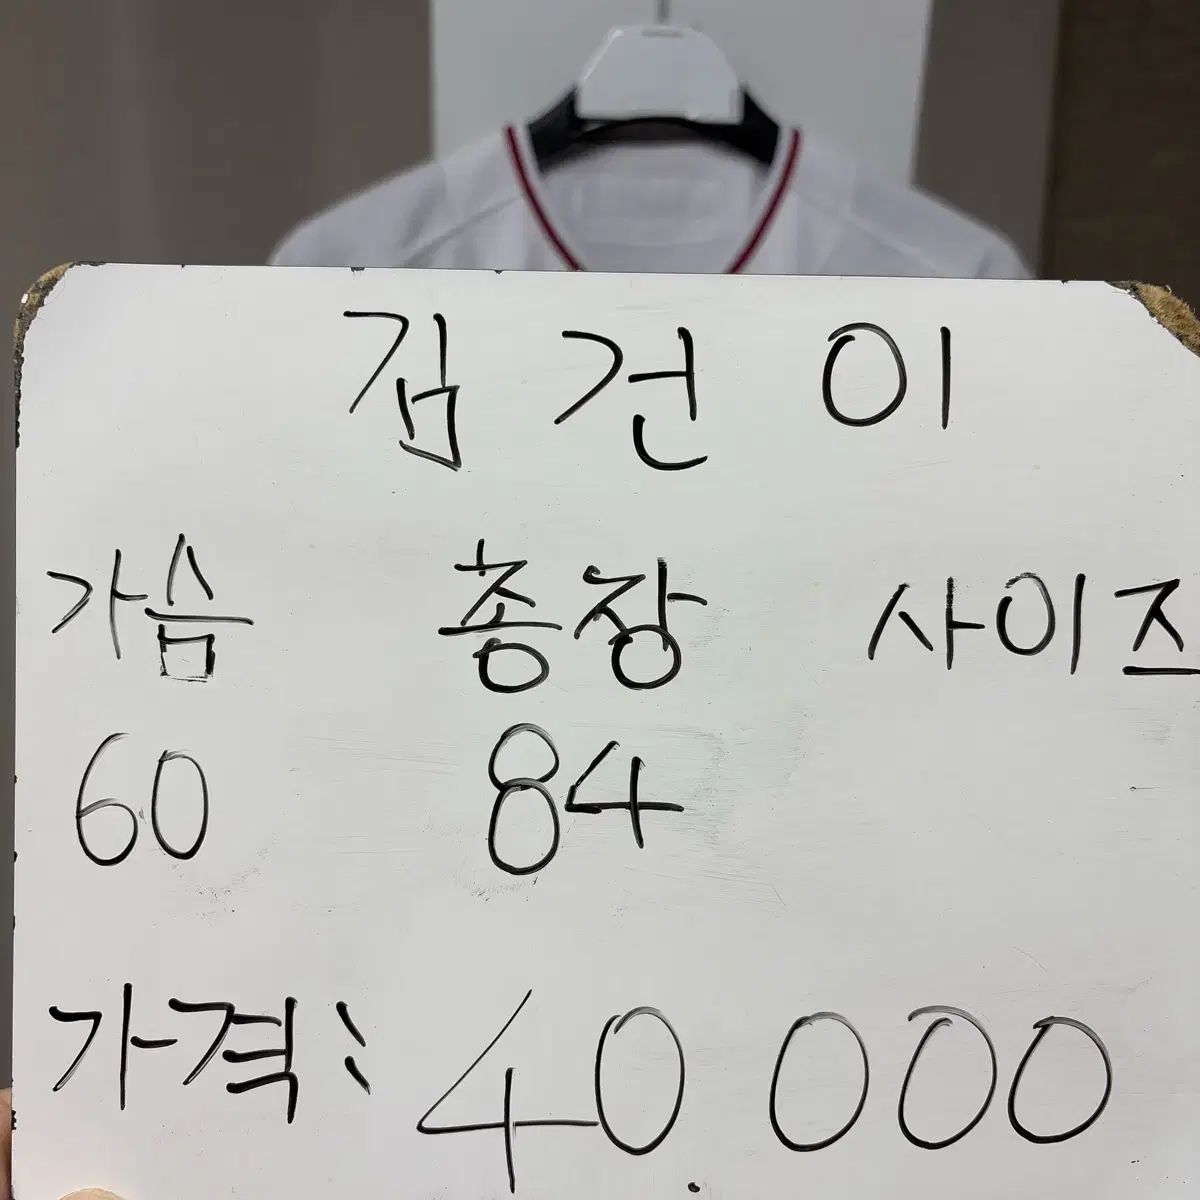 김건이
가슴 총장 사이즈
60 84
가격: 40.000